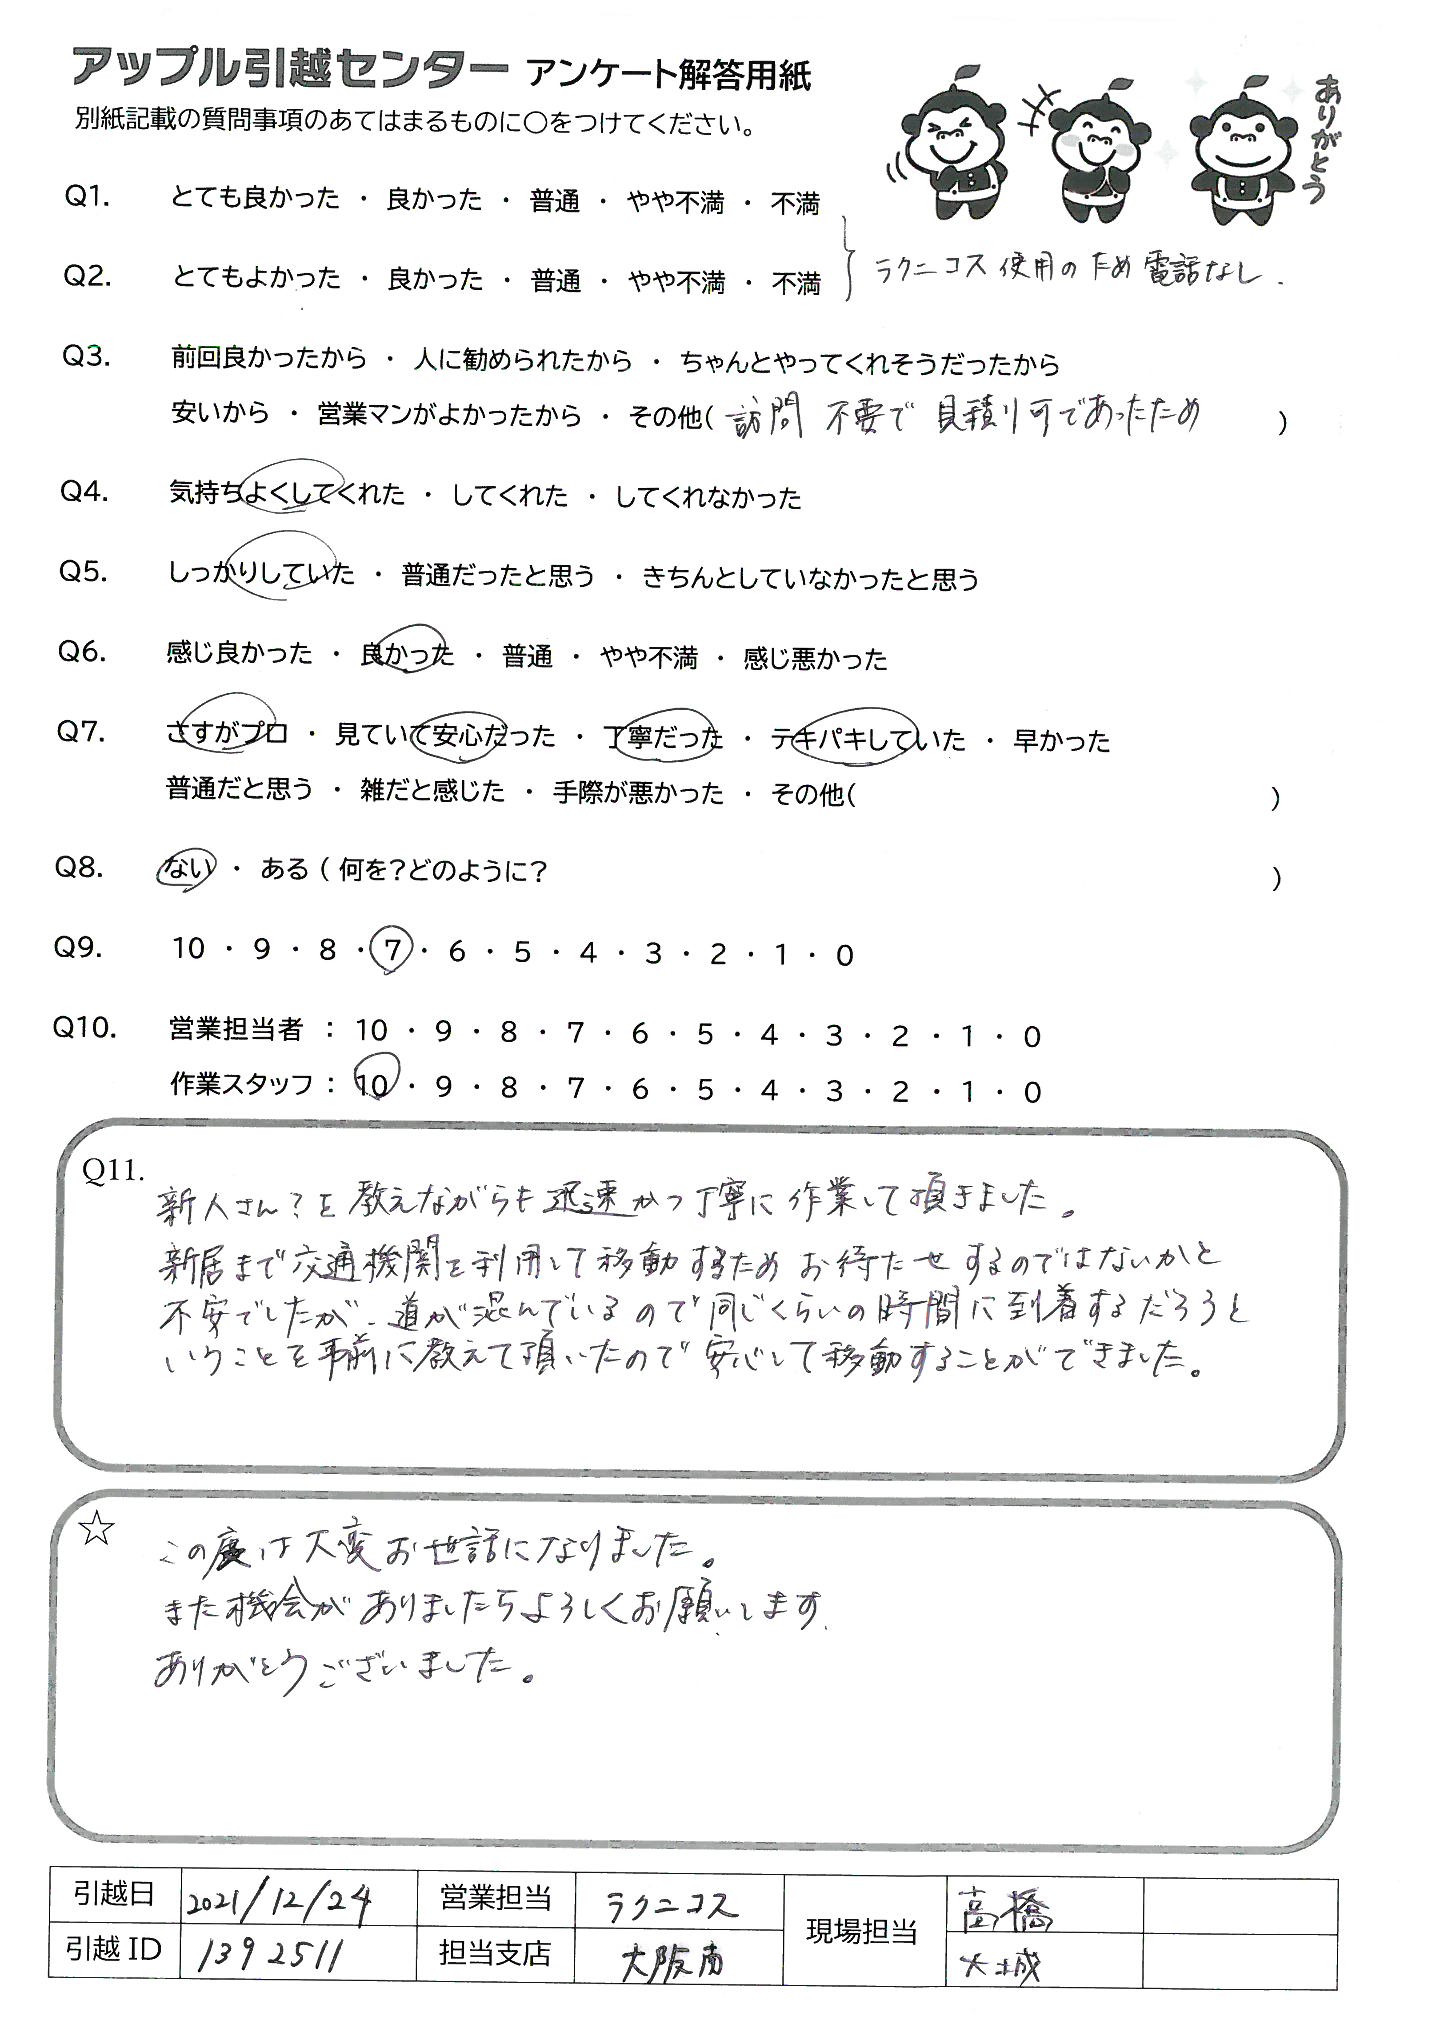 アップル引越センター アンケート解答用紙
別紙記載の質問事項のあてはまるものに〇をつけてください。
ありがとう
Q1. とても良かった ・ 良かった ・ 普通 ・ やや不満 ・ 不満
Q2. とてもよかった ・ 良かった ・ 普通 ・ やや不満 ・ 不満
ラクニコス使用のため電話なし.
Q3. 前回良かったから ・ 人に勧められたから ・ ちゃんとやってくれそうだったから
安いから ・ 営業マンがよかったから ・ その他( 訪問 不要で 見積り可であったため )
Q4. 気持ちよくしてくれた ・ してくれた ・ してくれなかった
Q5. しっかりしていた ・ 普通だったと思う ・ きちんとしていなかったと思う
Q6. 感じ良かった ・ 良かった ・ 普通 ・ やや不満 ・ 感じ悪かった
Q7. さすがプロ ・ 見ていて安心だった ・ 丁寧だった ・ テキパキしていた ・ 早かった
普通だと思う ・ 雑だと感じた ・ 手際が悪かった ・ その他( )
Q8. ない ・ ある ( 何を?どのように? )
Q9. 10 ・ 9 ・ 8 ・ 7 ・ 6 ・ 5 ・ 4 ・ 3 ・ 2 ・ 1 ・ 0
Q10. 営業担当者 : 10 ・ 9 ・ 8 ・ 7 ・ 6 ・ 5 ・ 4 ・ 3 ・ 2 ・ 1 ・ 0
作業スタッフ : 10 ・ 9 ・ 8 ・ 7 ・ 6 ・ 5 ・ 4 ・ 3 ・ 2 ・ 1 ・ 0
Q11.
新人さん?を教えながらも迅速かつ丁寧に作業して頂きました。
新居まで交通機関を利用して移動するためお待たせするのではないかと
不安でしたが、道が混んでいるので同じくらいの時間に到着するだろうと
いうことを事前に教えて頂いたので安心して移動することができました。
☆
この度は大変お世話になりました。
また機会がありましたらよろしくお願いします.
ありがとうございました。
引越日 2021/12/24 営業担当 ラクニコス 現場担当 高橋
引越ID 1392511 担当支店 大阪南 大城